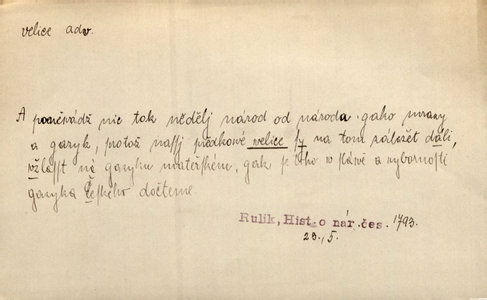 velice adv.
A poněvádž nic tak nědělj národ od národa gako mrawy
a gazyk, protož nassj předkowé velice sy na tom záležet dáli,
zwlásstě na gazyku mateřském, gak se toho w sláwě a wýbornosti
gazyka Českého dočteme
Rulík, Hist. o nár. čes. 1793.
23., 5.